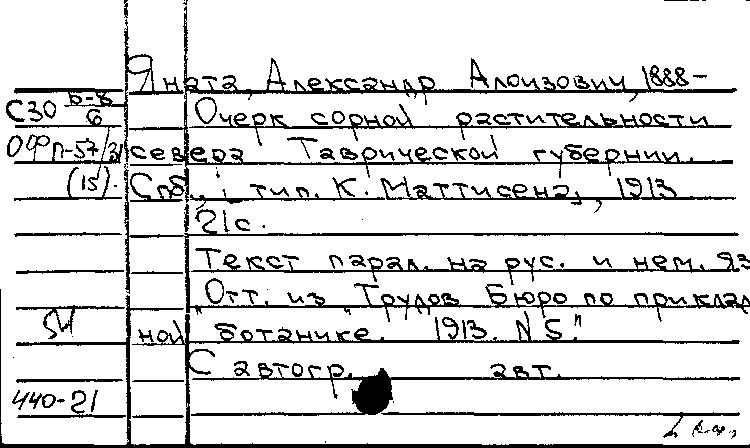 Яната, Александр Алоизович, 1888-
СЗО Б-8/6 Очерк сорной растительности
ОФ П-57/31 севера Таврической губернии.
(15). Спб., тип. К. Маттисена, 1913
21с.
Текст парал. на рус. и нем. яз
"Отт. из "Трудов Бюро по приклад
ной ботанике. 1913. N 5".
С автогр. авт.
440-21